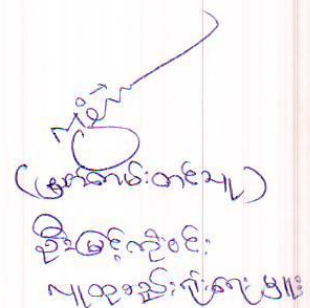 (မှတ်တမ်းတင်သူ)
ဦးမြင့်ကိုဝင်း
လူထုစည်းရုံးရေးမှူး